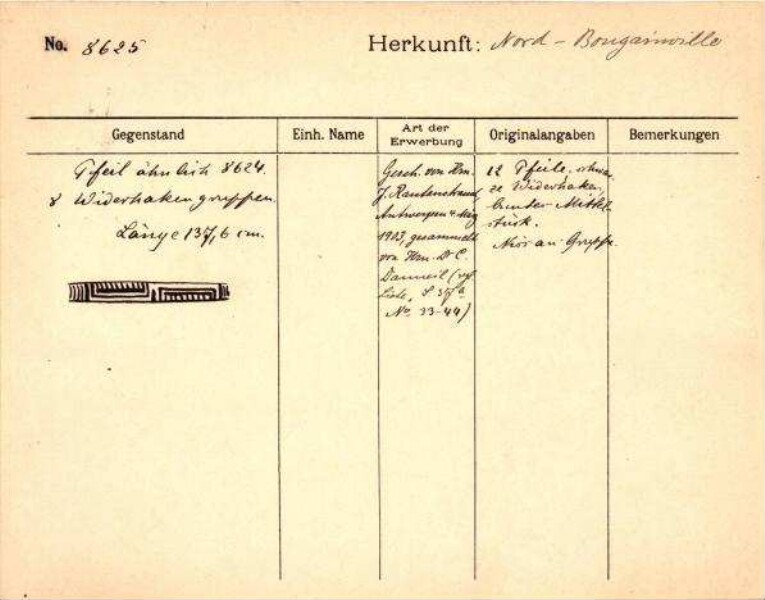 No. 8625
Herkunft: Nord - Bougainville
Gegenstand
Einh. Name
Art der
Erwerbung
Originalangaben
Bemerkungen
Pfeil ähnlich 8624.
8 Widerhakengruppen.
Länge 137,6 cm.
Gesch. von Hrn.
J. Rautenstrauch,
Antwerpen 4. Mrz
1903, gesammelt
von Hrn. Dr C.
Danneil (vgl
Liste, S 37a
No. 33-44)
12 Pfeile, schwar
ze Widerhaken,
bunter Mittel-
stück.
an Gruppe.